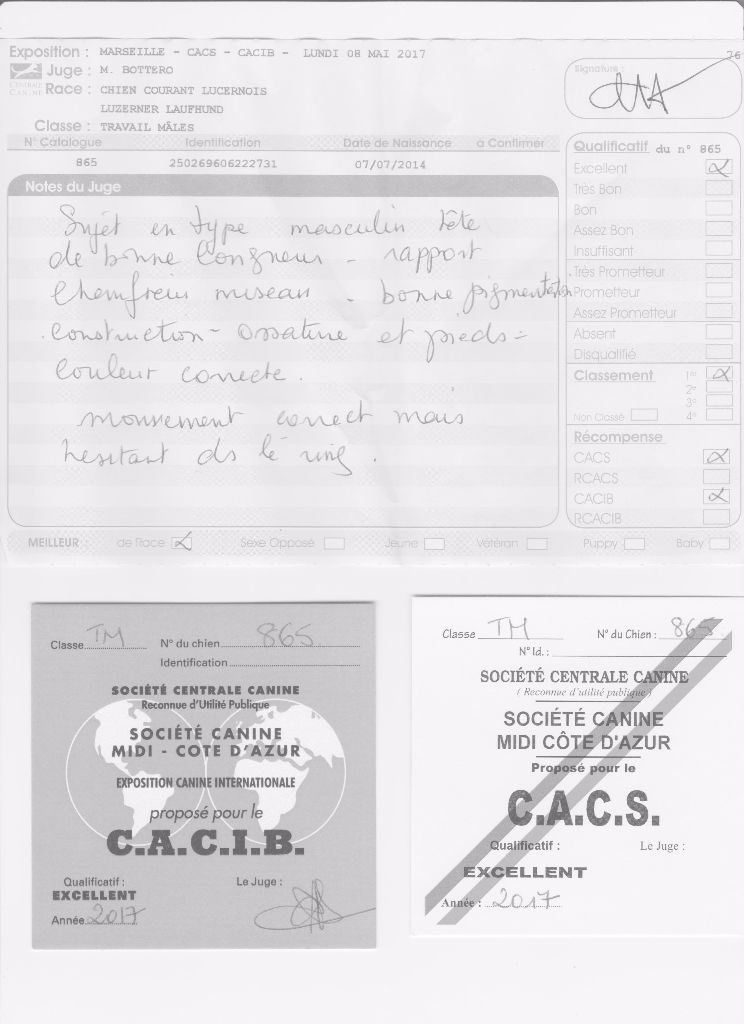 Exposition : MARSEILLE - CACS - CACIB - LUNDI 08 MAI 2017
76
CENTRALE CANINE
Juge : M. BOTTERO
Signature :
Race : CHIEN COURANT LUCERNOIS
LUZERNER LAUFHUND
Classe : TRAVAIL MÂLES
N° Catalogue Identification Date de Naissance a Confirmer
865 250269606222731 07/07/2014
Notes du Juge
Sujet en type masculin tête
de bonne longueur - rapport
Chemfrein museau - bonne pigmentation
construction - ossature et pieds =
couleur correcte.
mouvement correct mais
hesitant ds le ring.
Qualificatif du n° 865
Excellent
Très Bon
Bon
Assez Bon
Insuffisant
Très Prometteur
Prometteur
Assez Prometteur
Absent
Disqualifié
Classement 1er
2e
3e
Non Classé 4e
Récompense
CACS
RCACS
CACIB
RCACIB
MEILLEUR : de Race Sexe Opposé Jeune Vétéran Puppy Baby
Classe TM N° du chien 865
Identification
SOCIÉTÉ CENTRALE CANINE
Reconnue d'Utilité Publique
SOCIÉTÉ CANINE
MIDI - COTE D'AZUR
EXPOSITION CANINE INTERNATIONALE
proposé pour le
C.A.C.I.B.
Qualificatif : Le Juge :
EXCELLENT
Année 2017
Classe TM N° du Chien : 865
N° Id. :
SOCIÉTÉ CENTRALE CANINE
( Reconnue d'utilité publique )
SOCIÉTÉ CANINE
MIDI CÔTE D'AZUR
Proposé pour le
C.A.C.S.
Qualificatif : Le Juge :
EXCELLENT
Année : 2017